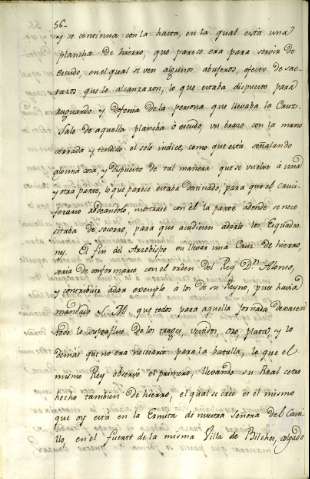 56.
y se continua con la hasta, en la qual está una
plancha de hierro, que parece era para servir de
escudo, en el qual se ven algunos abugeros, efecto de sae-
tazos que le alcanzaron, lo que estaba dispuesto para
resguardo y defensa de la persona que llevaba la Cruz.
Sale de aquella plancha ó escudo, un brazo con la mano
cerrada y tendido el solo indice, como que está señalando
alguna cosa, y dispuesto de tal manera que se vuelve á una
y otra parte, lo que parece estaba destinado, para que el Cruci-
ferario
mostrase con él la parte adonde se nece-
sitaba de socorro, para que acudiesen adonde los Esquadro-
nes. El fin del Arzobispo en llevar una Cruz de hierro
sería de conformarse con el orden del Rey Dn. Alonso,
y contribuir á dar exemplo á los de su Reyno, pues havia
mandado S. M. que todos para aquella Jornada
lo superfluo de los trages, vestidos, oro, plata, y lo
demas que no era necesario para la batalla, lo que el
mismo Rey observó el primero, llevando su Real cetro
hecho tambien de hierro, el qual se cree es el mismo
que oy está en la Ermita de nuestra Señora del Casti-
llo, en el fuerte de la misma Villa de Bilches, colgado